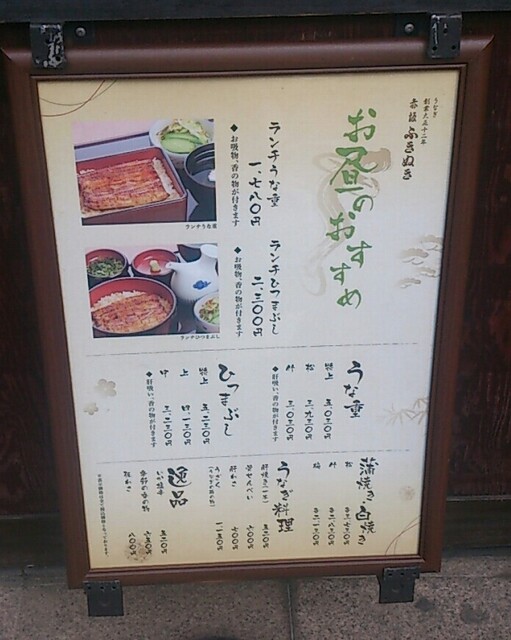 うなぎ
創業大正十二年
赤坂 ふきぬき
お昼のおすすめ
ランチうな重
一、七八〇円
◆お吸物、香の物が付きます
ランチうな重
ランチひつまぶし
二、三〇〇円
◆お吸物、香の物が付きます
ランチひつまぶし
うな重
特上 五、〇三〇円
松 三、九三〇円
竹 三、〇三〇円
◆肝吸い、香の物が付きます
ひつまぶし
特上 五、二三〇円
上 四、一三〇円
中 三、二三〇円
◆肝吸い、香の物が付きます
蒲焼き・白焼き
松
竹
梅
うなぎ料理
肝焼き(一本) 五三〇円
骨せんべい 六〇〇円
肝わさ 七〇〇円
うざく
一一五〇円
逸品
いか塩辛 五三〇円
季節の香の物 六五〇円
板わさ 八〇〇円